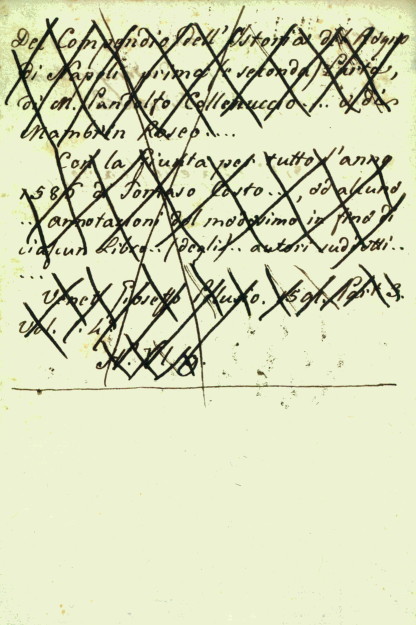 Del Compendio dell'Istoria del Regno
di Napoli prima e seconda Parte,
di M. Pandolfo Collenuccio... e di
Mambrin Roseo....
Con la Giunta per tutto l'anno
1586 di Tomaso Costo..., ed alcune
.. annotazioni del medesimo in fine di
ciascun Libro.. degli.. autori suddetti..
....
Venet. Gioseffo 1591. Part. 3.
Vol. 1. 4°